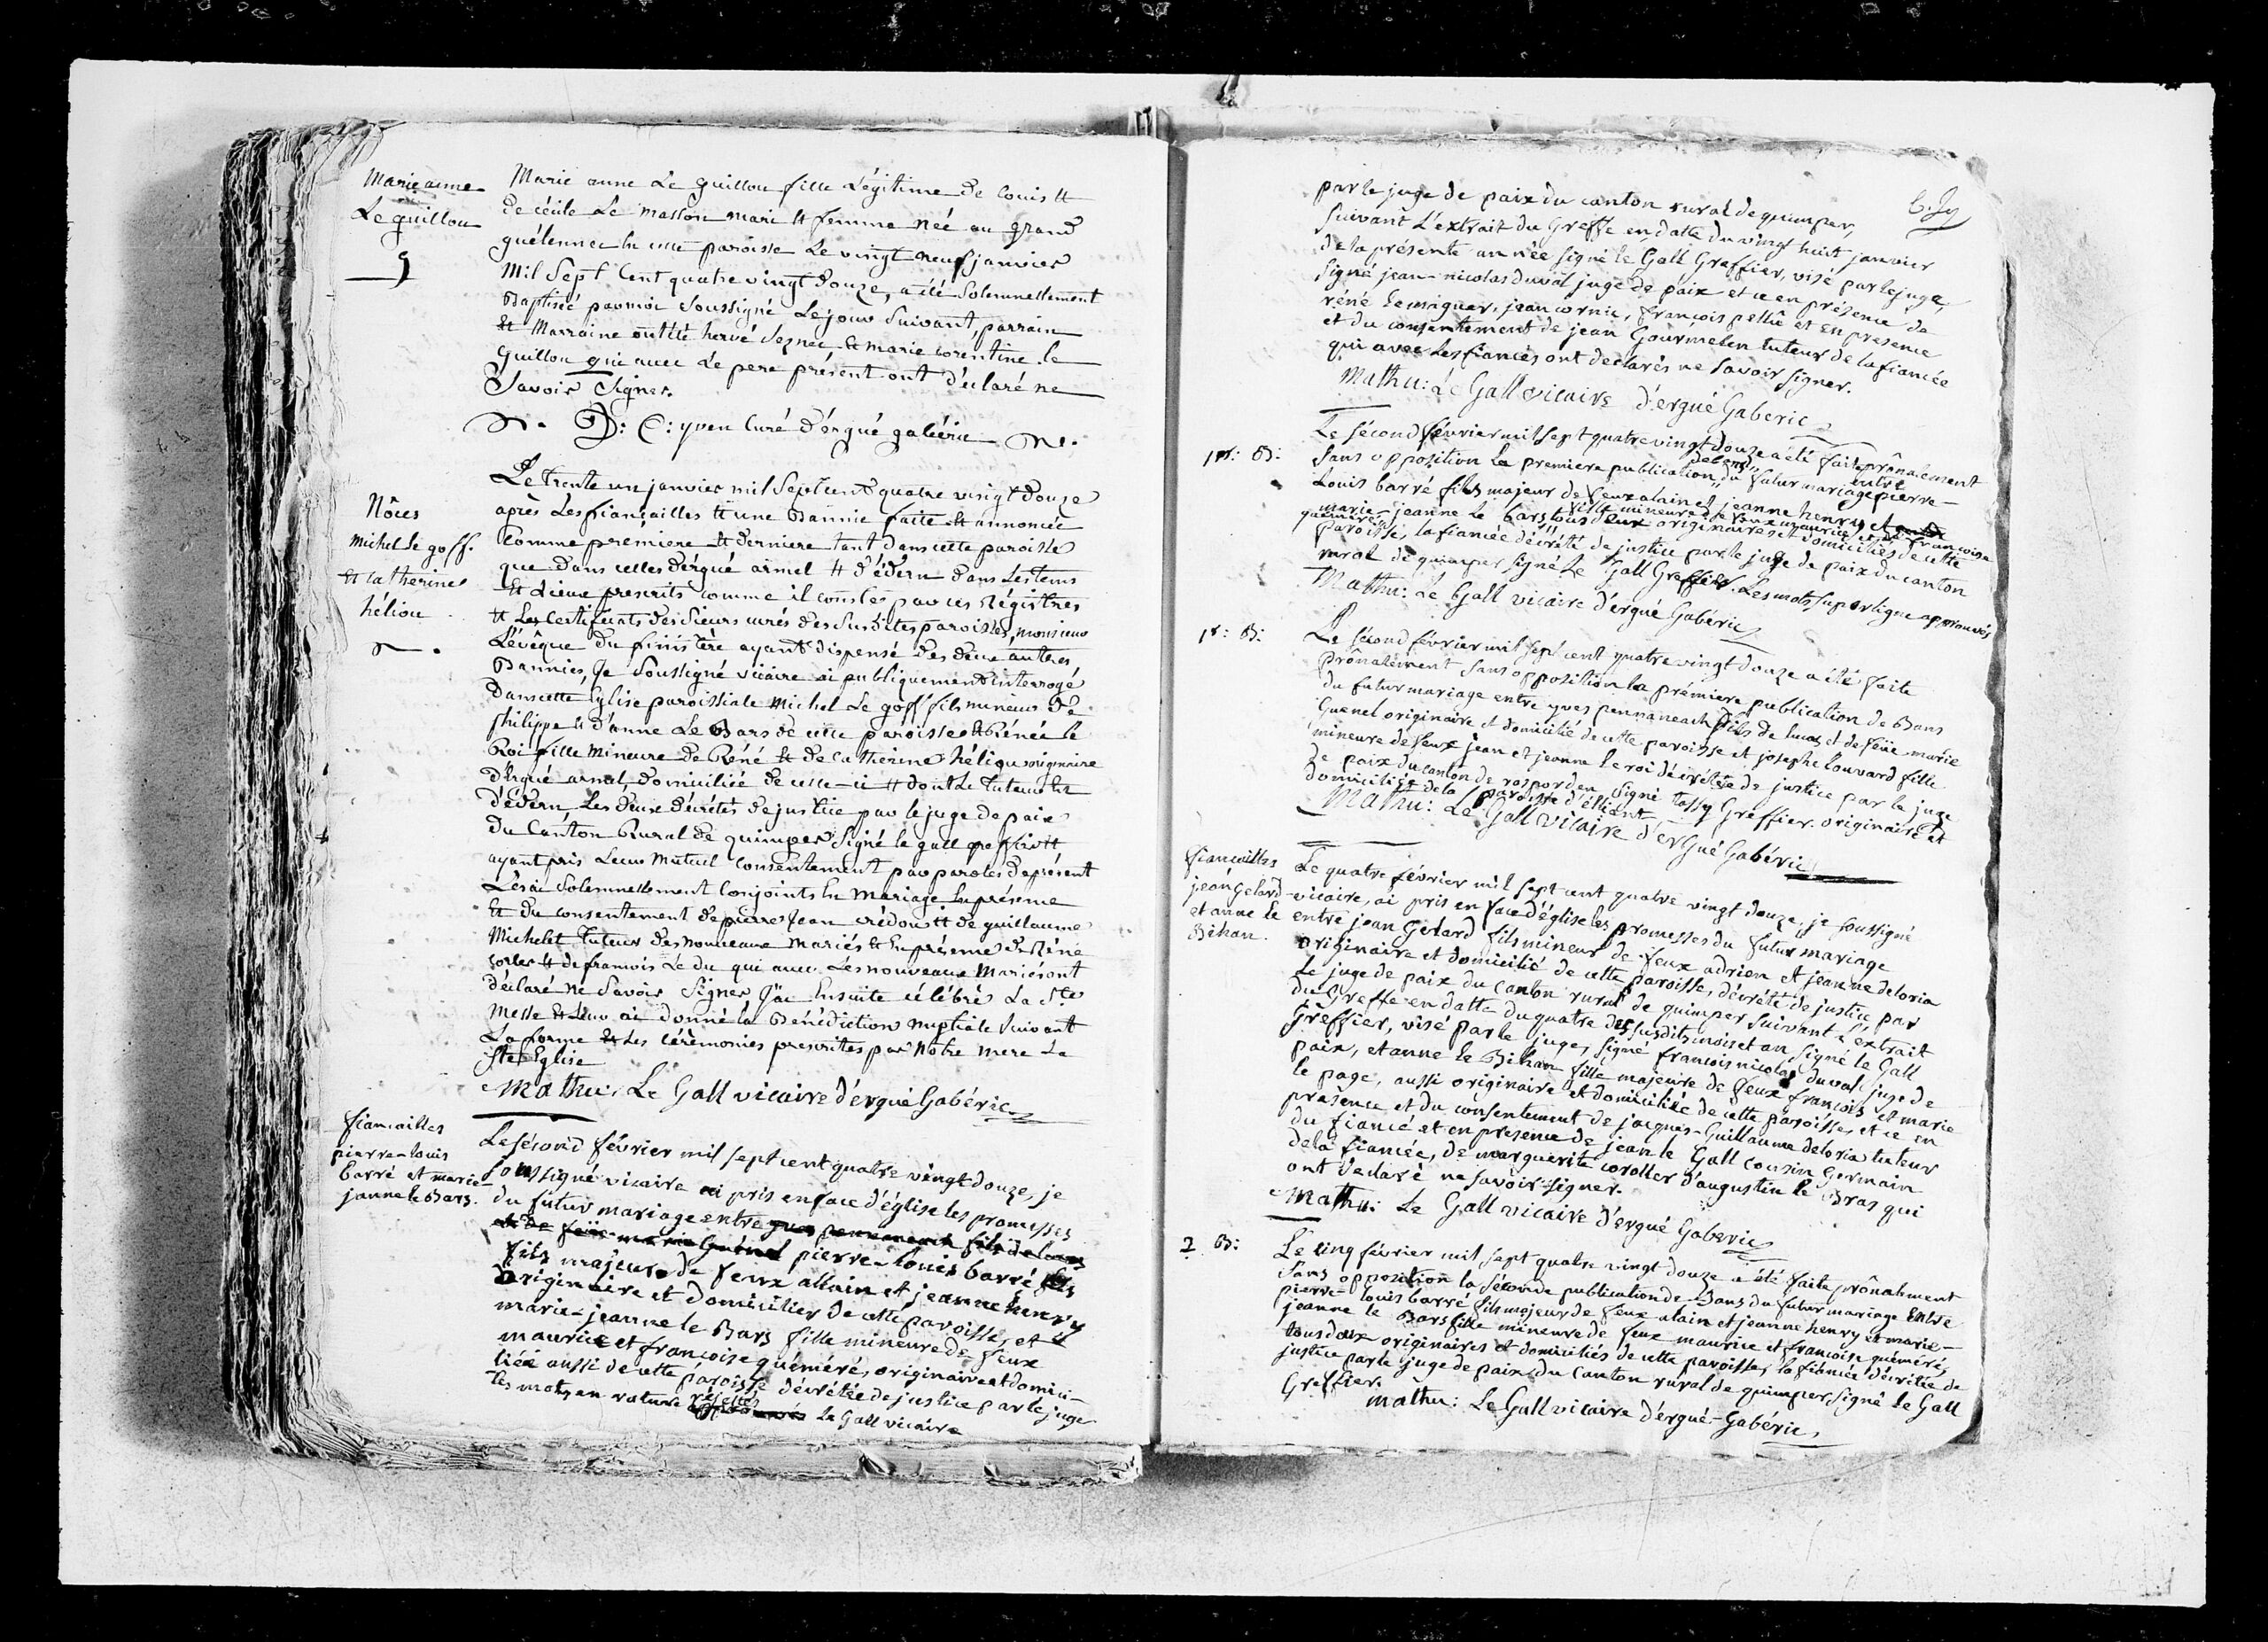 Marie anne
Le guillou
9
Marie anne Le guillou fille Légitime de Louis et
de cécile Le masson mari et femme née au grand
guélennec En cette paroisse Le vingt neuf janvier
Mil Sept Cent quatre vingt douze, a été Solemnellement
Baptisée par moi Soussigné Le jour Suivant, parrain
Et Marraine ont été hervé Seznec et marie corentine le
Guillou qui avec Le pere présent ont déclaré ne
Savoir Signer.
D: C: yven Curé d'érgué gabéric
Nôces
michel Le goff.
Et catherine
héliou
Le trente un janvier mil Sept cent quatre vingt Douze
après Les fiançailles et une Bannie faite et annoncée
Comme premiere et derniere tant dans cette paroisse
que dans celles d'ergué armel et d'édern dans Les tems
Et Lieux prescrits comme il conste par ces Régistres
et Les certificats des Sieurs curés des Susdites paroisses, monsieur
L'évêque du finistère ayant dispensé des deux autres
Bannies, Je Soussigné vicaire ai publiquement interrogé
Dans cette Eglise paroissiale Michel Le goff fils mineur de
philippe et d'anne Le Bars de cette paroisse et Rénée le
Roi fille Mineure de Réné et de Catherine héliou originaire
d'Ergué armel, domiciliée de celle-ci et dont Le tuteur Est
d'édern Les deux décrétés de justice par le juge de paix
du Canton Rural de quimper Signé le gall greffier et
ayant pris Leur Mutuel Consentement par paroles de présent
Les ai Solemnellement Conjoints En Mariage En présence
Et du consentement de pierre Jean crédou et de guillaume
Michelet Tuteur des nouveaux mariés et En présence de Réné
et de francois Le du qui avec Les nouveaux Mariés ont
déclaré ne Savoir Signer J'ai Ensuite célébré La Ste
Messe et Leur ai donné la Bénédiction nuptiale Suivant
La forme et Les cérémonies prescrites par Notre mere La
Ste Eglise
Mathu: Le Gall vicaire d'érgué Gabéric
fiancailles
pierre-louis
barré et marie-
jeanne le Bars.
Le sécond février mil sept cent quatre vingt douze, je
soussigné vicaire ai pris en face d'église les promesses
du futur mariage entre yves pennaneach fils de lucas
et de feüe marie Guénel pierre-louis barré fils
fils majeur de feux allain et jeanne henry
originaire et domicilier de cette paroisse, et
marie-jeanne le Bars fille mineure de feux
maurice et francoise quéméré, originaire et domici-
liée aussi de cette paroisse décrétée de justice par le juge
Les mots en rature réjettés Le Gall vicaire
par le juge de paix du canton rural de quimper,
suivant L'extrait du Greffe en datte du vingt huit janvier
de la présente année signé le Gall Greffier, visé par le juge
signé jean-nicolas duval juge de paix et ce en présence de
réné le maguer, jean cornic, françois pellé et en presence
et du consentement de jean Gourmelen tuteur de la fiancée
qui avec les fiancés ont declarés ne savoir signer.
Mathu: Le Gall vicaire d'ergué Gaberic
1re: B:
Le sécond février mil sept quatre vingt douze a été faite prônalement
sans opposition la premiere publication de bans du futur mariage entre pierre-
Louis barré fils majeur de feux alain et jeanne henry et
marie-jeanne le bars fille mineure de feux maurice et de francoise
quéméré tous deux originaires et domiciliés de cette
paroisse, la fiancée décrété de justice par le juge de paix du canton
rural de quimper signé Le Gall Greffier. Les mots superligne approuvés
Mathu: Le Gall vicaire d'ergué Gabéric
1r: B:
Le sécond février mil sept cent quatre vingt douze a été faite
prônalement sans opposition la prémiere publication de Bans
du futur mariage entre yves pennaneach fils de lucas et de feüe marie
Guenel originaire et domicilié de cette paroisse et josephe louvard fille
mineure de feux jean et jeanne le roi décrétée de justice par le juge
de paix du canton de rosporden signé tassy Greffier. originaire et
domiciliée de la paroisse d'elliant
Mathu: Le Gall vicaire d'ergué Gabéric
fiancailles
jean Gelard
et anne le
Bihan.
Le quatre février mil sept cent quatre vingt douze, je soussigné
vicaire, ai pris en face d'église les promesses du futur mariage
entre jean Gelard fils mineur de feux adrien et jeanne deloria
originaire et domicilié de cette paroisse, décrété de justice par
le juge de paix du canton rural de quimper suivant l'extrait
du Greffe en datte du quatre des susdits mois et an signé le Gall
Greffier, visé par le juge, signé francois nicolas duval juge de
paix, et anne le Bihan fille majeure de feux francois et marie
le page, aussi originaire et domiciliée de cette paroisse, et ce en
présence et du consentement de jacques-Guillaume deloria tuteur
du fiancé et en presence de jean le Gall cousin Germain
de la fiancée, de marguerite coroller d'augustin le Bras qui
ont déclaré ne savoir signer.
Mathu: Le Gall vicaire d'ergué Gaberic
2 B:
Le cinq février mil sept quatre vingt douze a été faite prônalement
sans opposition la séconde publication de Bans du futur mariage Entre
pierre-louis barré fils majeur de feux alain et jeanne henry et marie-
jeanne le Bars fille mineure de feux maurice et francoise quéméré,
tous deux originaires et domiciliés de cette paroisse, la fiancée décrétée de
justice par le juge de paix du canton rural de quimper signé le Gall
Greffier.
Mathu: Le Gall vicaire d'ergué-Gabéric